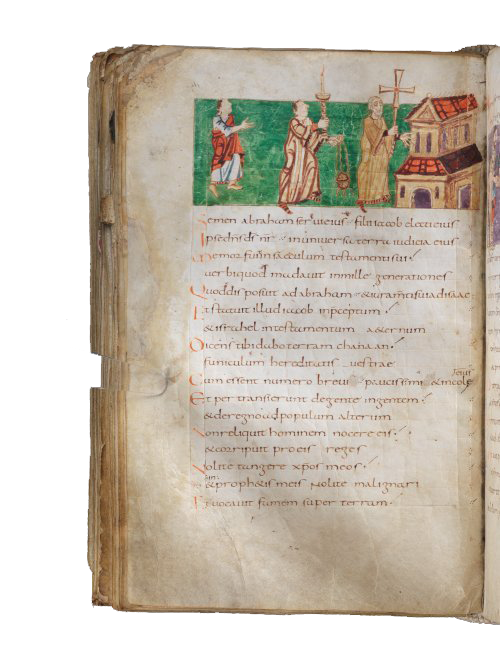 Semen abraham servi eius filii iacob electi eius
Ipse dns ds nr in universa terra iudicia eius
Memor fuit in saeculum testamenti sui
verbi quod mandavit in mille generationes
Quod disposuit ad abraham & iuramti sui ad isaac
Et statuit illud iacob in pceptum
& israhel in testamentum aeternum
Dicens tibi dabo terram chanaan
funiculum hereditatis vestrae
Cum essent numero brevi paucissimi & incolę
eius
Et per transierunt de gente in gentem
& de regno ad populum alterum
Non reliquit hominem nocere eis
& corripuit pro eis reges
Nolite tangere xpos meos
& in prophetis meis nolite malignari
Et vocavit famem super terram